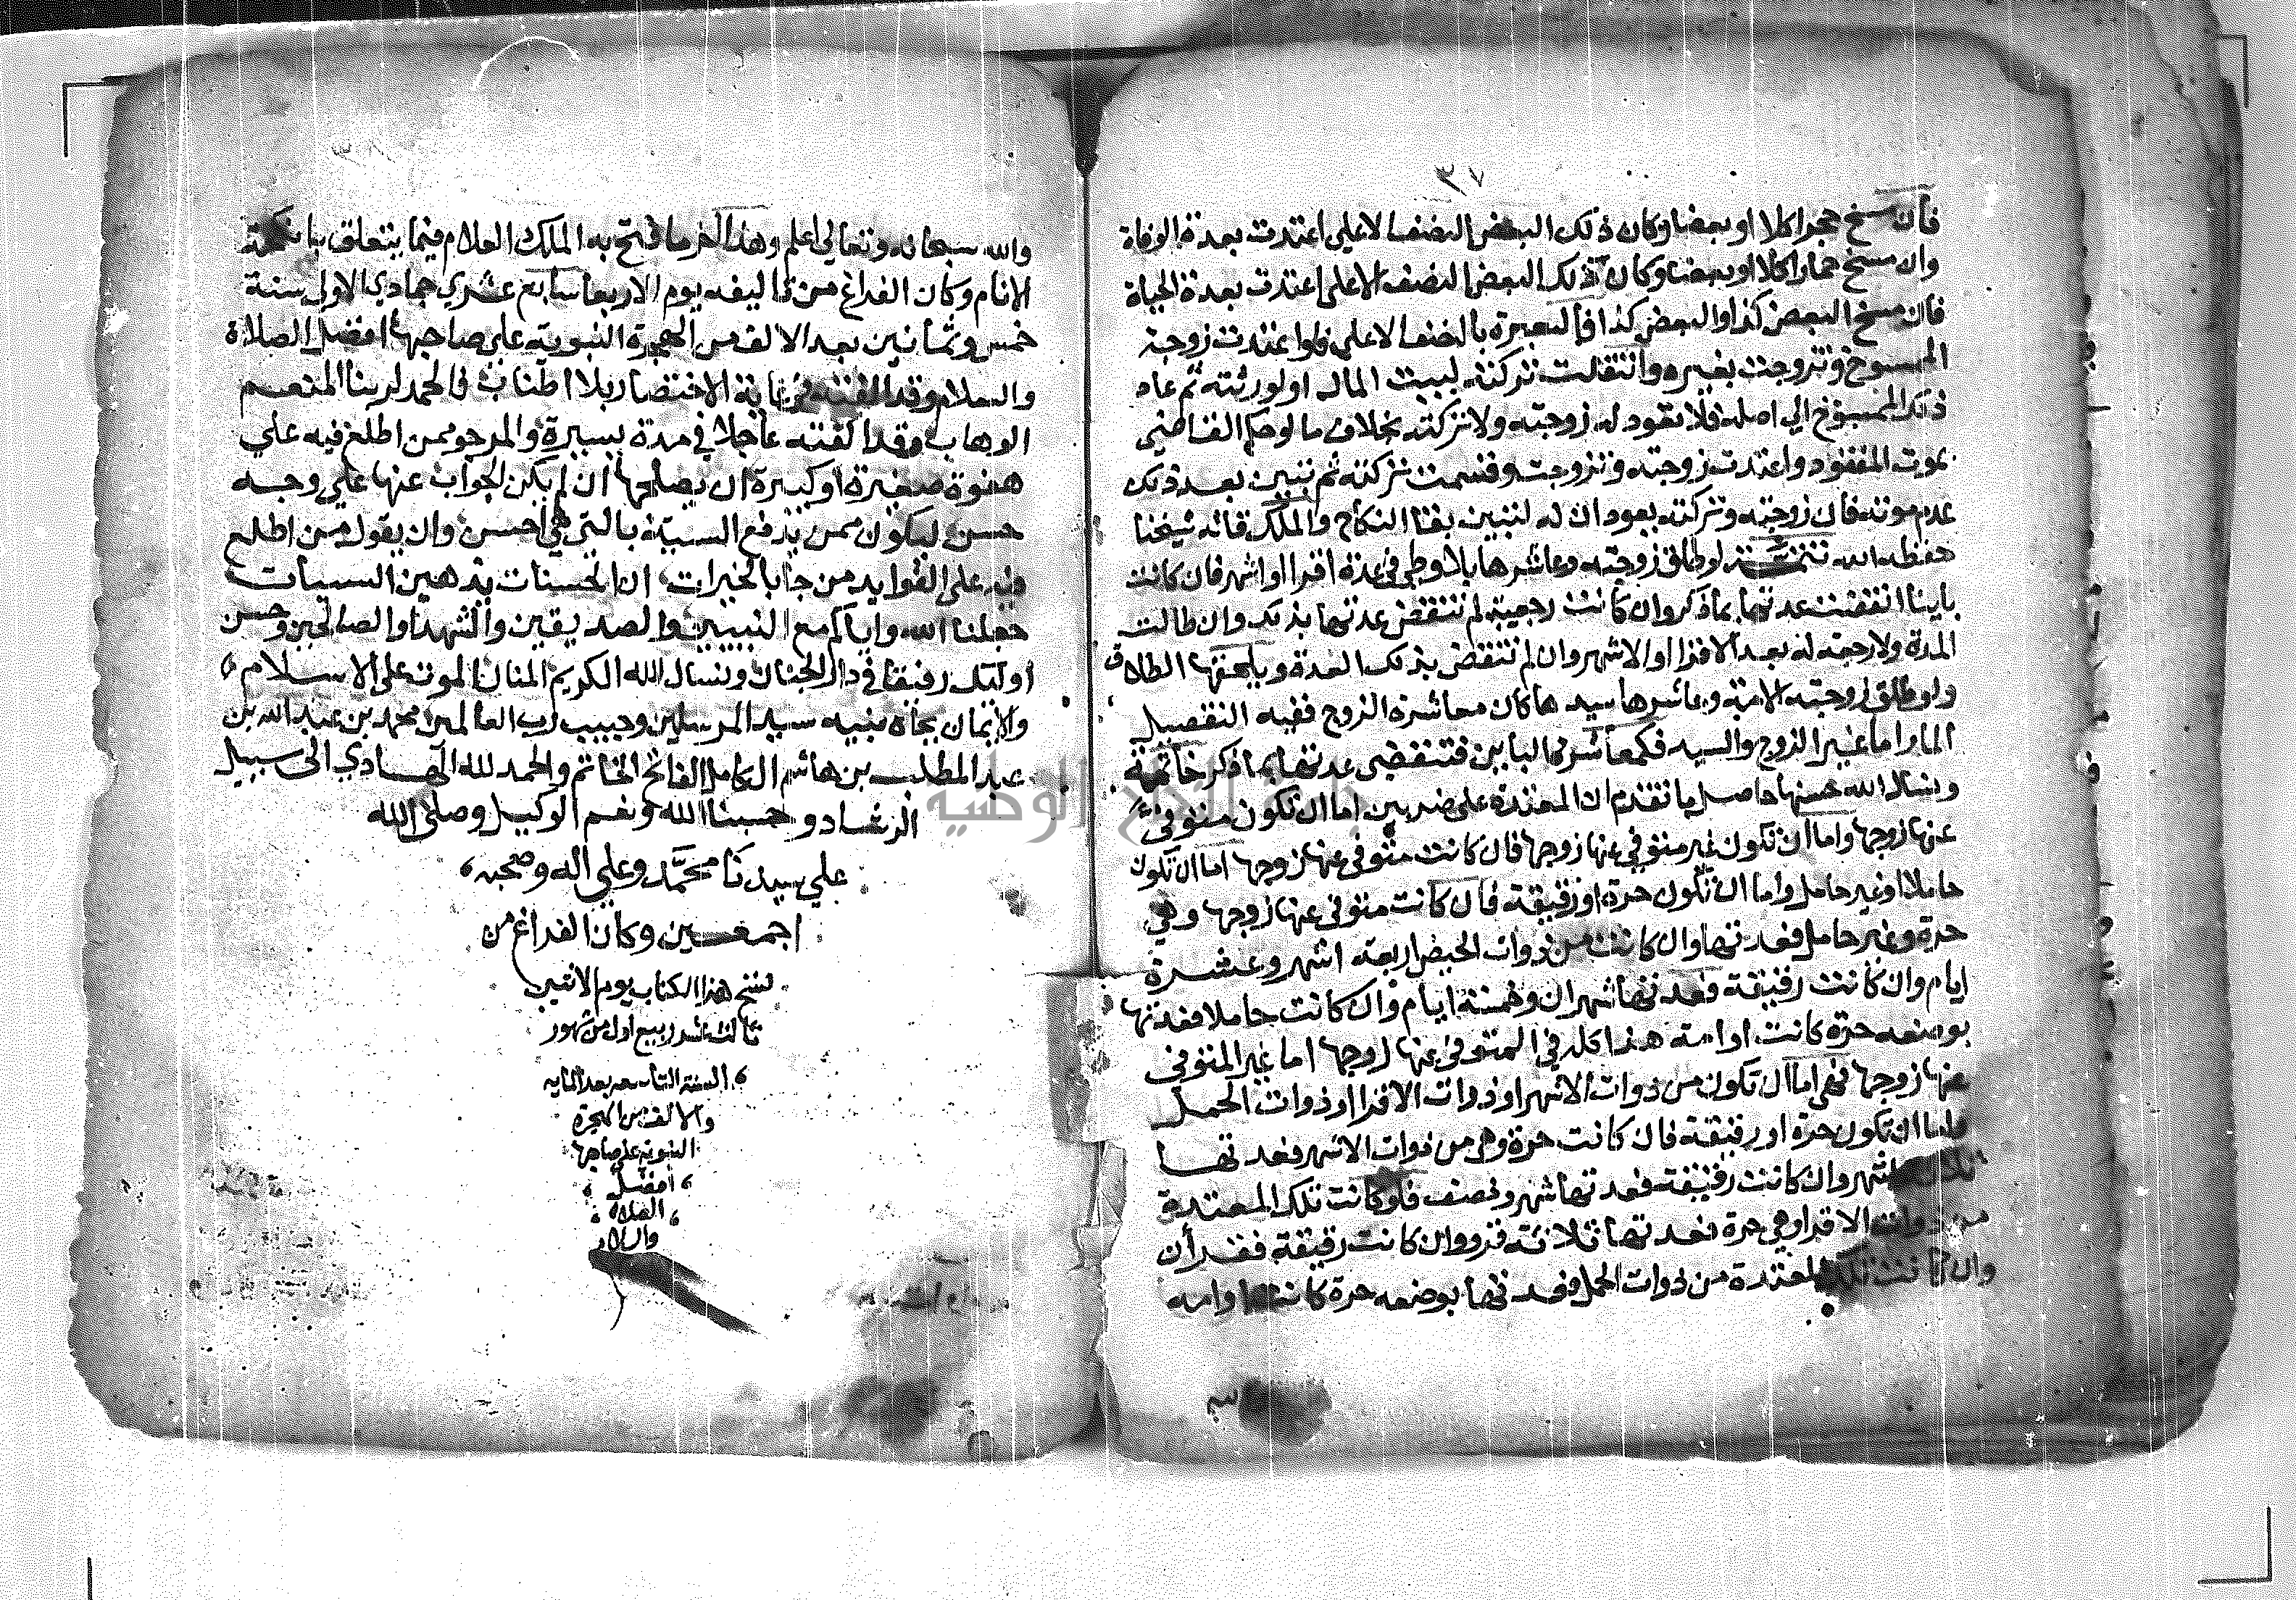 ٣٧
فان مسخ حجرا كلا او بعضا وكان ذلك البعض النصف الاعلي اعتدت بعدة الوفاة
وان مسخ حمارا كلا او بعضا وكان ذلك البعض النصف الاعلي اعتدت بعدة الحياة
فان مسخ البعض كذا والبعض كذا فالعبرة بالنصف الاعلي فلو اعتدت زوجة
الممسوخ وتزوجت بغيره وانتقلت تركته لبيت المال او لورثته ثم عاد
ذلك الممسوخ الي اصله فلا تعود له زوجته ولا تركته بخلاف ما لو حكم القاضي
بموت المفقود واعتدت زوجته وتزوجت وقسمت تركته ثم تبين بعد ذلك
عدم موته فان زوجته وتركته يعودان له لتبين بقا النكاح والملك قاله شيخنا
حفظه الله تتمة لو طلق زوجته وعاشرها بلا وطي في عدة اقرا او اشهر فان كانت
باينا انقضت عدتها بما ذكر وان كانت رجعية لم تنقض عدتها بذلك وان طالت
المدة ولا رجعة له بعد الاقرا او الاشهر وان لم تنقض بذلك العدة ويلحقها الطلاق
ولو طلق زوجته الامة وعاشرها سيدها كان معاشرة الزوج ففيه التفصيل
المار اما غير الزوج والسيد فكمعاشرة البائن فتنقضي عدتها بما ذكر خاتمة
ونسال الله حسنها حاصل ما تقدم ان المعتدة علي ضربين اما ان تكون متوفي
عنها زوجها واما ان تكون غير متوفي عنها زوجها فان كانت متوفي عنها زوجها اما ان تكون
حاملا او غير حامل واما ان تكون حرة او رقيقة فان كانت متوفي عنها زوجها وهي
حرة وغير حامل فعدتها وان كانت من ذوات الحيض اربعة اشهر وعشرة
ايام وان كانت رقيقة فعدتها شهران وخمسة ايام وان كانت حاملا فعدتها
بوضعه حرة كانت او امة هذا كله في المتوفي عنها زوجها اما غير المتوفي
عنها زوجها فهي اما ان تكون من ذوات الاشهر او ذوات الاقرا او ذوات الحمل
واما ان تكون حرة او رقيقة فان كانت حرة وهي من ذوات الاشهر فعدتها
اشهر وان كانت رقيقة فعدتها شهر ونصف فلو كانت تلك المعتدة
من ذوات الاقرا وهي حرة فعدتها ثلاثة قروو وان كانت رقيقة فقرأن
وان كانت تلك المعتدة من ذوات الحمل فعدتها بوضعه حرة كانت او امه
والله سبحانه وتعالي اعلم وهذا اخر ما فتح به الملك العلام فيما يتعلق بانكحة
الانام وكان الفراغ من تاليفه يوم الاربعا سابع عشري جمادي الاولي سنة
خمس وثمانين بعد الالف من الهجرة النبوية علي صاحبها افضل الصلاة
والسلام وقد الفته في غاية الاختصار بلا اطناب فالحمد لربنا المنعم
الوهاب وقد الفته عاجلا في مدة يسيرة والمرجو ممن اطلع فيه علي
هفوة صغيرة او كبيرة ان يصلحها ان لم يكن الجواب عنها علي وجه
حسن ليكون ممن يدفع السيئة بالتي هي احسن وان يقول من اطلع
فيه علي الفوايد من جا بالخيرات ان الحسنات يذهبن السييات
جعلنا الله واياكم مع النبيين والصديقين والشهدا والصالحين وحسن
اوليك رفيقا في دار الجنان ونسال الله الكريم المنان الموت علي الاسلام
والايمان بجاه نبيه سيد المرسلين وحبيب رب العالمين محمد بن عبد الله بن
عبد المطلب بن هاشم الكامل الفاتح الخاتم والحمد لله الهادي الي سبيل
الرشاد وحسبنا الله ونعم الوكيل وصلي الله
علي سيدنا محمد وعلي اله وصحبه
اجمعين وكان الفراغ من
نسخ هذا الكتاب يوم الاثنين
ثالث عشر ربيع اول من شهور
السنة التاسعه بعد المايه
والالف من الهجرة
النبوية علي صاحبها
افضل
الصلاة
والسلام